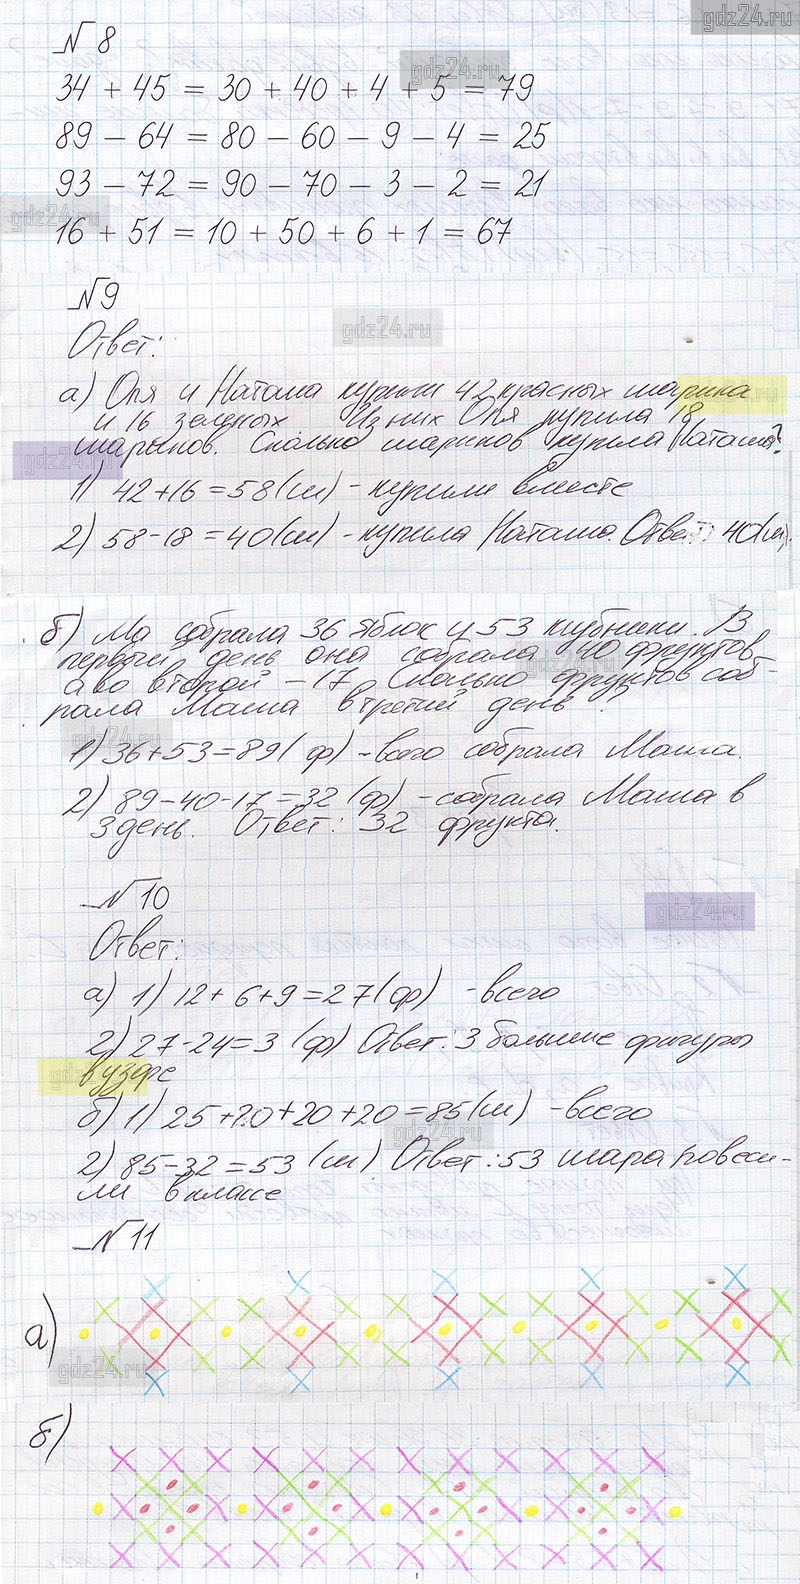 gdz24.ru
№ 8
gdz24.ru
34 + 45 = 30 + 40 + 4 + 5 = 79
89 - 64 = 80 - 60 - 9 - 4 = 25
93 - 72 = 90 - 70 - 3 - 2 = 21
gdz24.ru
16 + 51 = 10 + 50 + 6 + 1 = 67
№ 9
gdz24.ru
Ответ:
а) Оля и Наташа купили 42 красных шарика
и 16 зеленых Из них Оля купила 18
шариков. Сколько шариков купила Наташа?
gdz24.ru
1) 42+16=58(ш) - купили вместе
2) 58-18=40(ш) - купила Наташа. Ответ: 40(ш).
б) Ма собрала 36 яблок и 53 клубники. В
первый день она собрала 40 фруктов
gdz24.ru
а во второй - 17. Сколько фруктов соб-
рала Маша в третий день ?
gdz24.ru
1) 36+53=89( ф) - всего собрала Маша.
2) 89-40-17=32 (ф) - собрала Маша в
3 день. Ответ: 32 фрукта.
№ 10
gdz24.ru
Ответ:
а) 1) 12+ 6+9=27(ф) - всего
2) 27-24=3 (ф) Ответ: 3 большие фигуры
в узоре
б) 1) 25+20+20+20=85(ш) - всего
gdz24.ru
2) 85-32=53 (ш) Ответ: 53 шара повеси-
ли в классе
№ 11
а)
gdz24.ru
б)